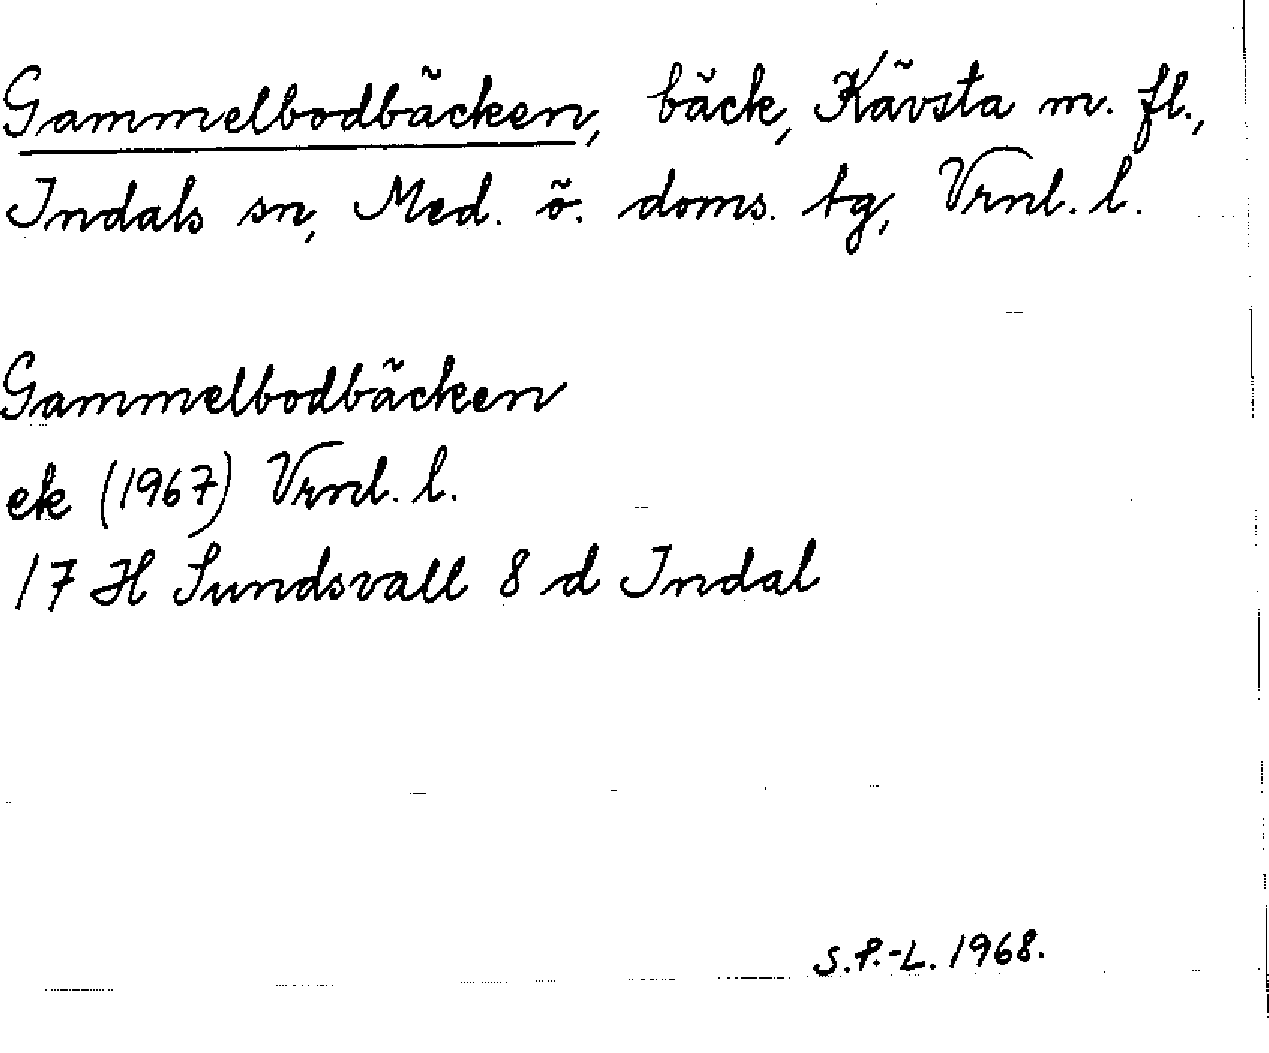 Gammelbodbäcken, bäck, Kävsta m. fl.,
Indals sn, Med. ö. doms. tg, Vrnl. l.
Gammelbodbäcken
ek (1967) Vrnl. l.
17 H Sundsvall 8 d Indal
S.P.-L. 1968.